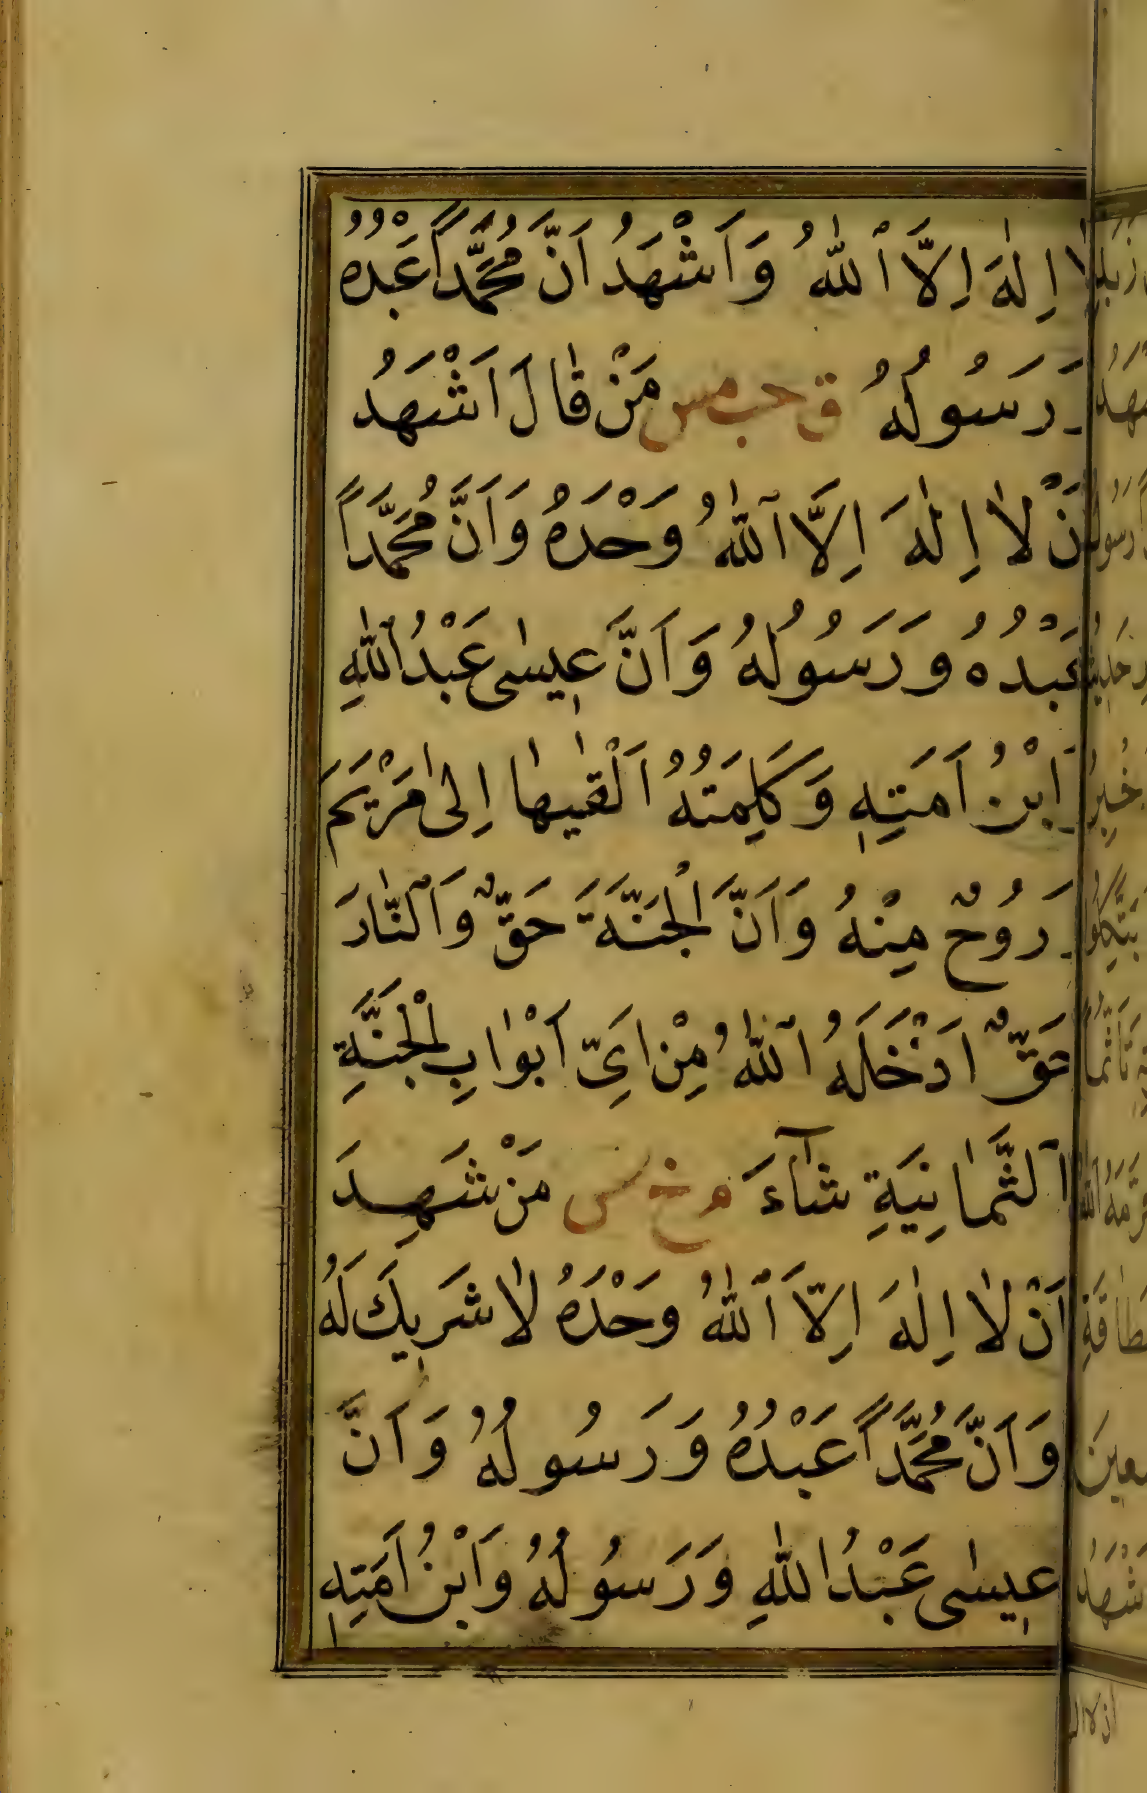 لَا اِلٰهَ اِلَّا ٱللّٰهُ وَاَشْهَدُ اَنَّ مُحَمَّدًا عَبْدُهُ
وَرَسُولُهُ ق حب مس مَنْ قَالَ اَشْهَدُ
اَنْ لَا اِلٰهَ اِلَّا ٱللّٰهُ وَحْدَهُ وَاَنَّ مُحَمَّدًا
عَبْدُهُ وَرَسُولُهُ وَاَنَّ عِيسٰى عَبْدُ ٱللّٰهِ
وَابْنُ اَمَتِهِ وَكَلِمَتُهُ اَلْقٰيهٰا اِلٰى مَرْيَمَ
وَرُوحٌ مِنْهُ وَاَنَّ الْجَنَّةَ حَقٌّ وَٱلنَّارَ
حَقٌّ اَدْخَلَهُ ٱللّٰهُ مِنْ اَىِّ اَبْوَابِ الْجَنَّةِ
ٱلثَّمَانِيَةِ شَآءَ م خ س مَنْ شَهِدَ
اَنْ لَا اِلٰهَ اِلَّا ٱللّٰهُ وَحْدَهُ لَا شَرِيكَ لَهُ
وَاَنَّ مُحَمَّدًا عَبْدُهُ وَرَسُولُهُ وَاَنَّ
عِيسٰى عَبْدُ اللّٰهِ وَرَسُولُهُ وَابْنُ اَمَتِهِ